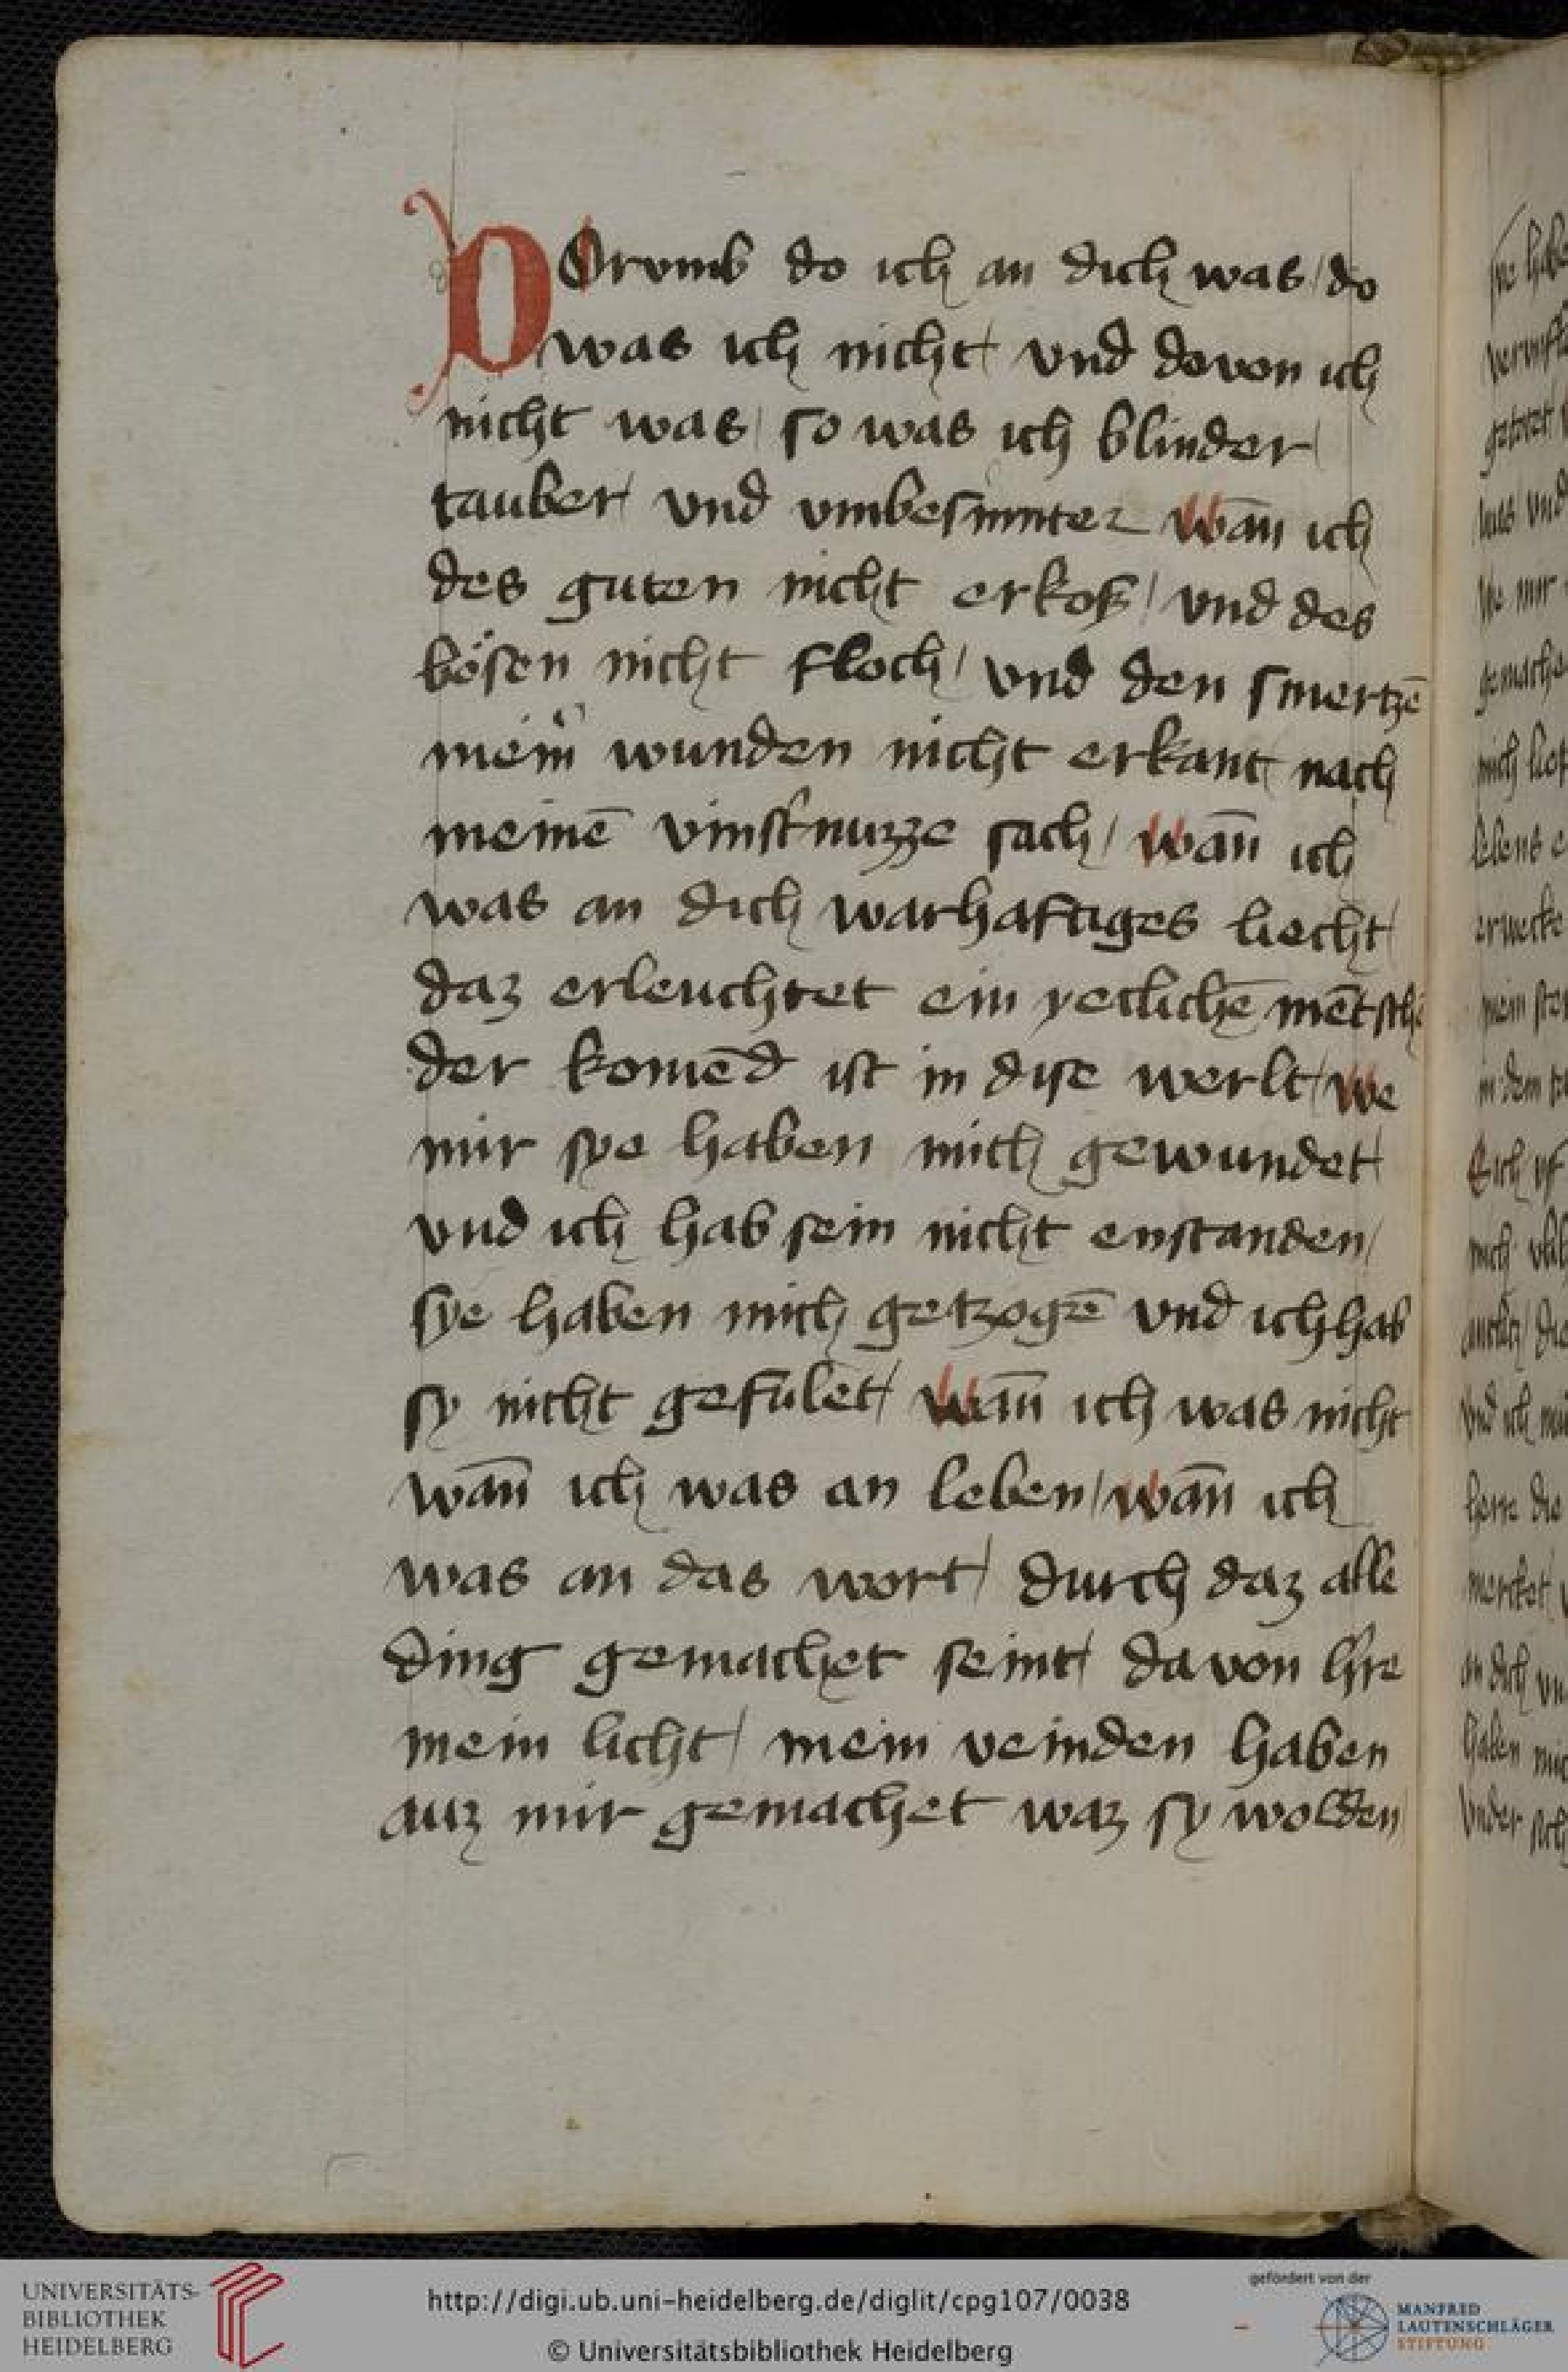 DOrvmb do ich an dich was / do
was ich nicht / vnd dovon ich
nicht was / so was ich blinder /
tauber / vnd vmbesinnter wān ich
des guten nicht erkoß / vnd des
bösen nicht floch / vnd den smertzē
mein͛ wunden nicht erkant / nach
meinē vinst͛nuzze sach / wān ich
was an dich warhaftiges liecht /
daz erleuchtet ein yeclichē mētschē
der komēd ist in dise werlt / we
mir sye haben mich gewundet /
vnd ich hab sein nicht enstanden /
sye haben mich getzogē vnd ich hab
sy nicht gefulet / wān ich was nicht
wān ich was an leben / wān ich
was an das wort / durch daz alle
ding gemachet seint / da von h͛re
mein licht / mein veinden haben
auz mir gemachet waz sy wolden /
UNIVERSITÄTS-
BIBLIOTHEK
HEIDELBERG
http://digi.ub.uni-heidelberg.de/diglit/cpg107/0038
© Universitätsbibliothek Heidelberg
gefördert von der
MANFRED
LAUTENSCHLÄGER
STIFTUNG